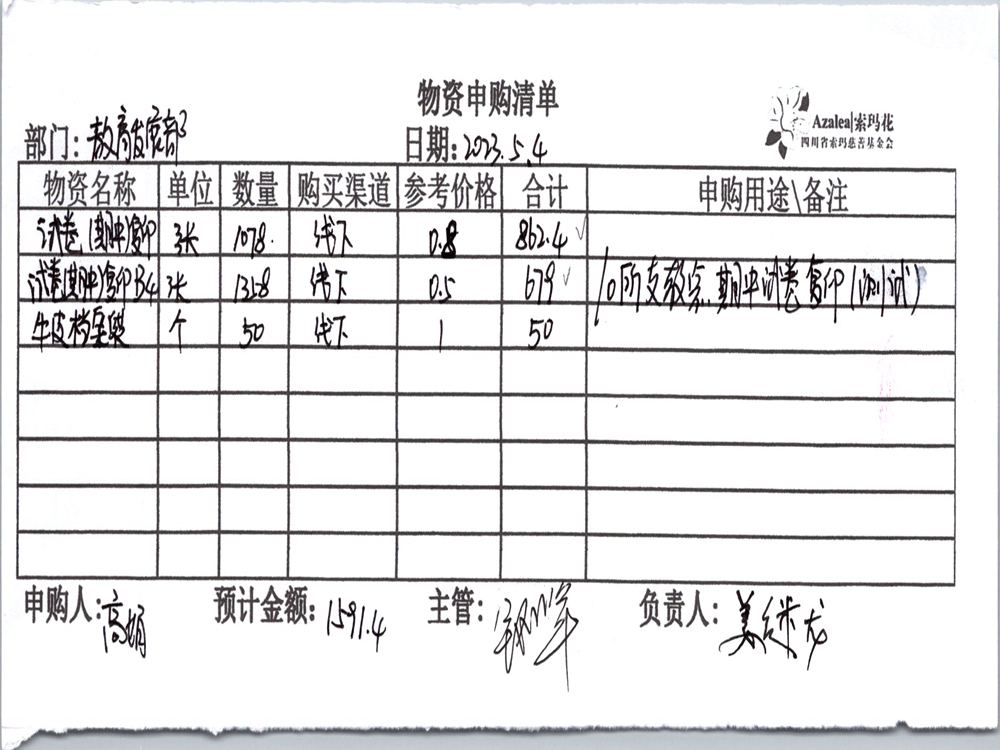 物资申购清单
Azalea|索玛花
四川省索玛慈善基金会
部门：教育发展部 日期：2023.5.4
物资名称 单位 数量 购买渠道 参考价格 合计 申购用途\备注
试卷(期中)复印 张 1078 线下 0.8 862.4 ✓
试卷(期中)复印B4 张 1358 线下 0.5 679 ✓ 10所支教点期中试卷复印(测试)
牛皮档案袋 个 50 线下 1 50
申购人：高娟 预计金额：1591.4 主管： 负责人：姜继龙